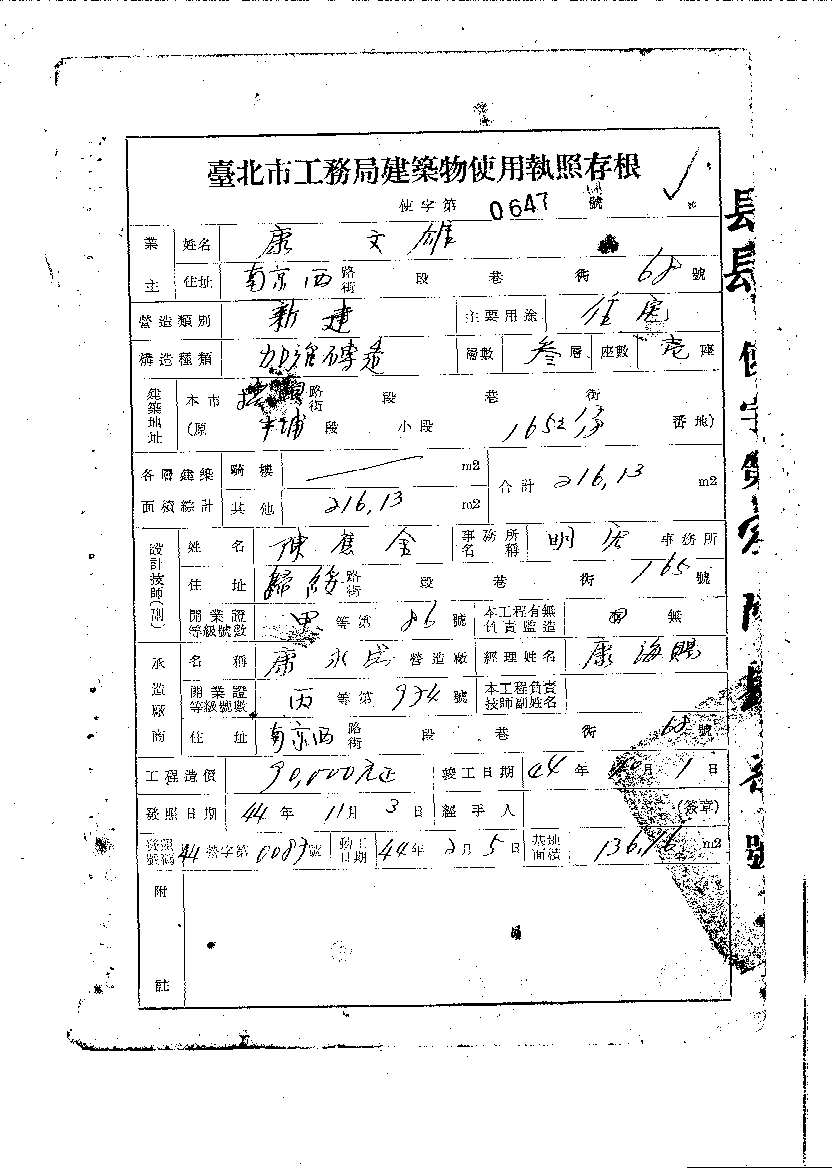 臺北市工務局建築物使用執照存根
使字第 0647 號
業主 姓名 康文雄
住址 南京西 路街 段 巷 衖 68 號
營造類別 新建 主要用途 住宅
構造種類 加強磚造 層數 叁層 座數 壱座
建築地址 本市 路街 段 巷 衖
(原 牛埔 段 小段 1652 番地)
各層建築面積綜計 騎樓 m2 合計 216,13 m2
其他 216,13 m2
設計技師(副) 姓名 陳 金 事務所名稱 明 事務所
住址 歸綏 路街 段 巷 衖 165 號
開業證等級號數 甲 等第 86 號 本工程有無負責監造 無
承造廠商 名稱 康永 營造廠 經理姓名 康海賜
開業證等級號數 丙 等第 934 號 本工程負責技師副姓名
住址 南京西 路街 段 巷 衖 68 號
工程造價 90,000元正 竣工日期 44 年 月 1 日
發照日期 44 年 11 月 3 日 經手人 (簽章)
發照號碼 44 營字第 0083 號 動工日期 44 年 2 月 5 日 基地面積 136,16 m2
附註